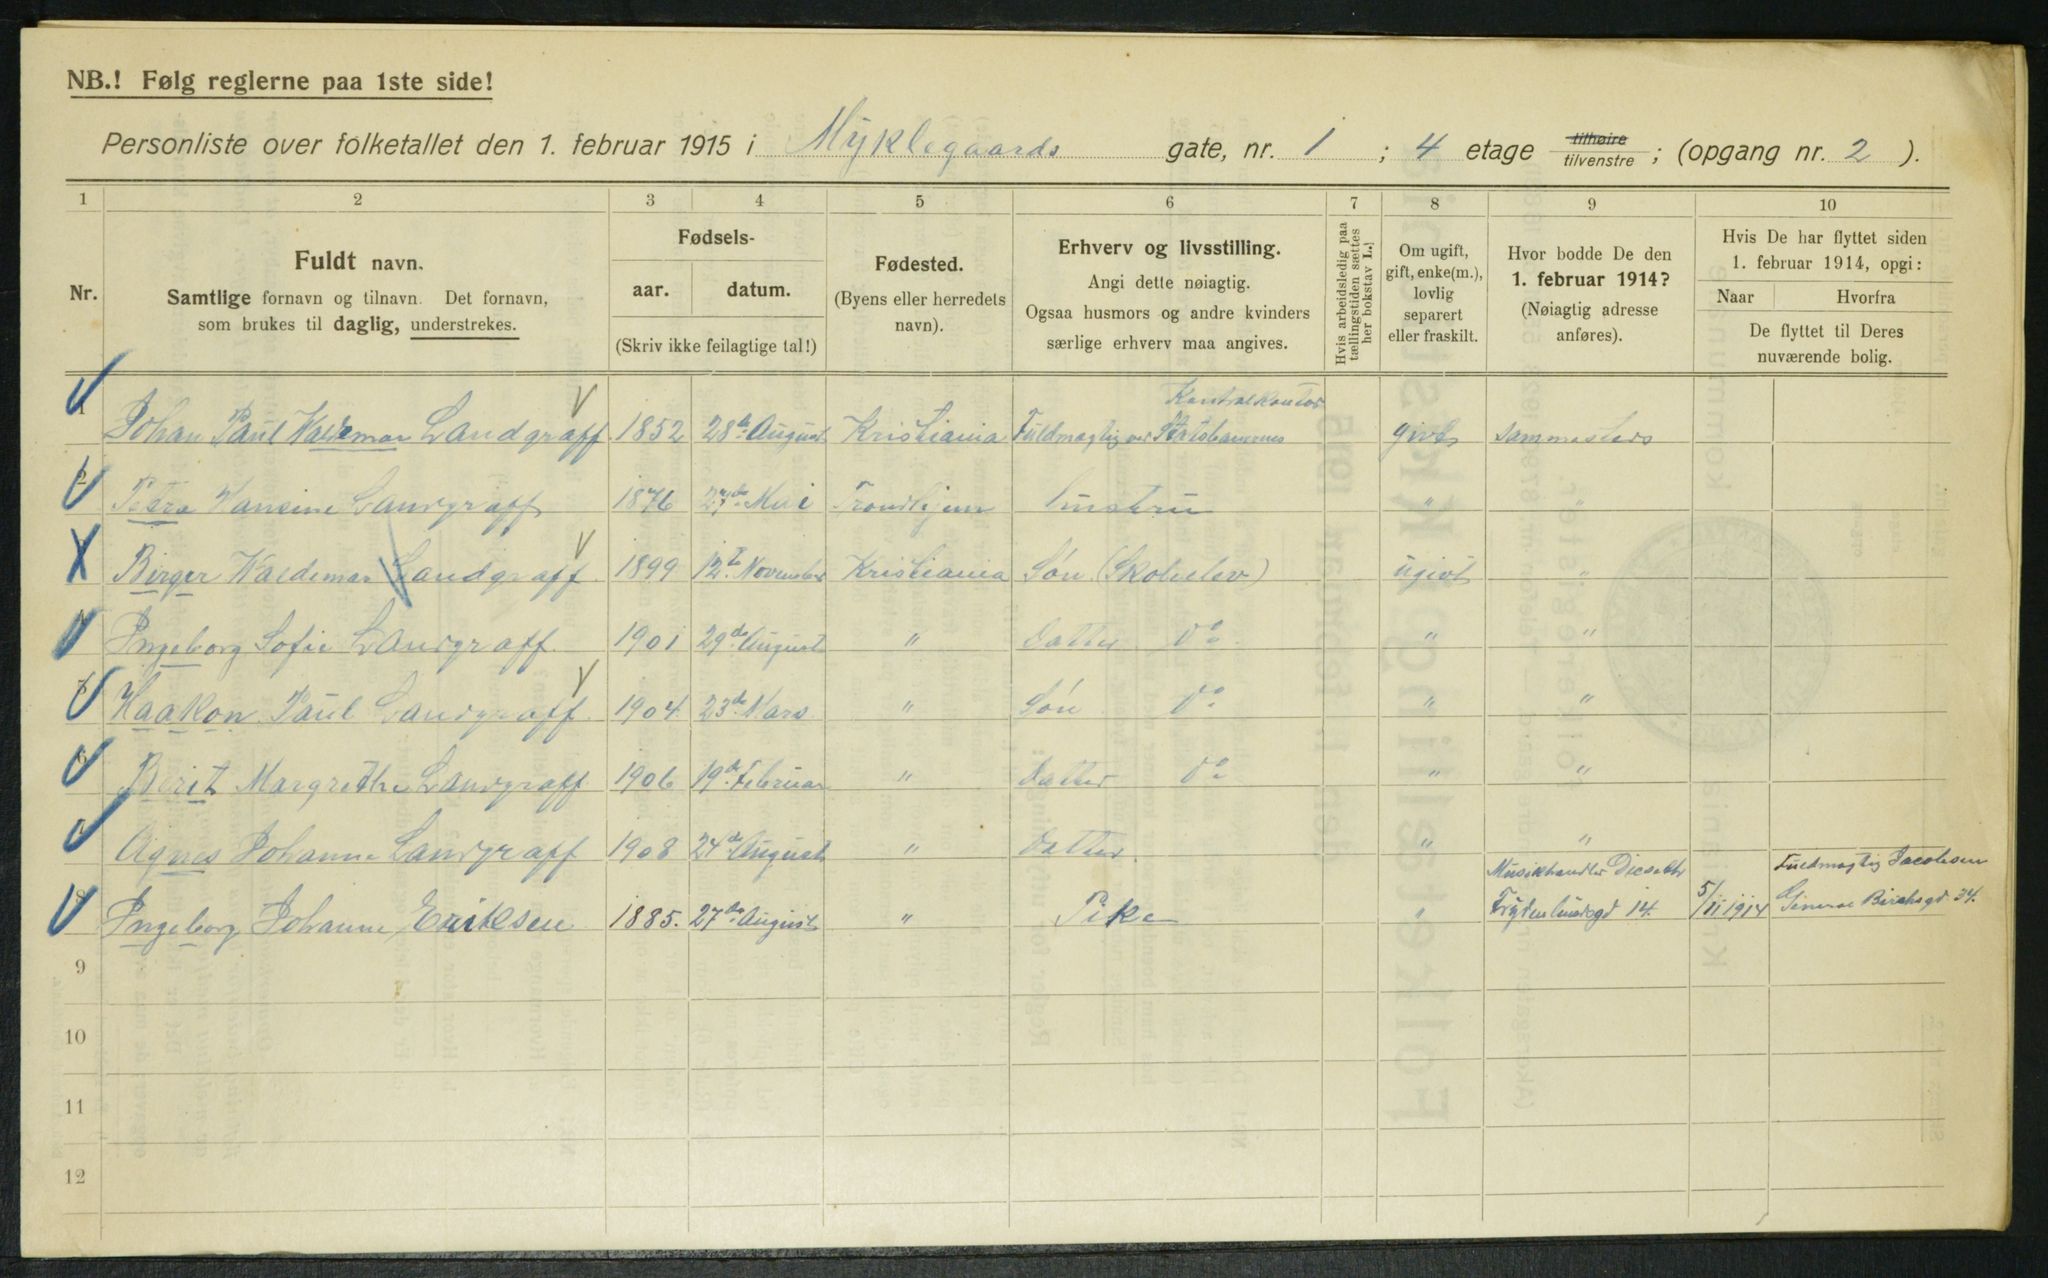 NB.! Følg reglerne paa 1ste side!
Personliste over folketallet den 1. februar 1915 i Myklegaards gate, nr. 1 ; 4 etage tilhøire / tilvenstre ; (opgang nr. 2 ).
1 2 3 4 5 6 7 8 9 10
Nr.
Fuldt navn.
Samtlige fornavn og tilnavn. Det fornavn,
som brukes til daglig, understrekes.
Fødsels-
aar. datum.
(Skriv ikke feilagtige tal!)
Fødested.
(Byens eller herredets
navn).
Erhverv og livsstilling.
Angi dette nøiagtig.
Ogsaa husmors og andre kvinders
særlige erhverv maa angives.
Hvis arbeidsledig paa
tællingstiden sættes
her bokstav L.!
Om ugift,
gift, enke(m.),
lovlig
separert
eller fraskilt.
Hvor bodde De den
1. februar 1914?
(Nøiagtig adresse
anføres).
Hvis De har flyttet siden
1. februar 1914, opgi:
Naar Hvorfra
De flyttet til Deres
nuværende bolig.
Kontrolkontor
1 Johan Paul Waldemar Landgraff 1852 28de August Kristiania Fuldmægtig ved Statsbanernes givt sammesteds
2 Petra Hansine Landgraff 1876 27de Mai Trondhjem hustru " "
Birger Waldemar Landgraff 1899 12te November Kristiania Søn (Skoleelev) ugivt "
Ingeborg Sofie Landgraff 1901 29de August " Datter Do " "
Haakon Paul Landgraff 1904 23de Mars " Søn Do " "
6 Berit Margrethe Landgraff 1906 19de Februar " Datter Do " "
Agnes Johanne Landgraff 1908 24de August " Datter " "
Musikhandler Fuldmægtig Jacobsen
8 Ingeborg Johanne Eriksen 1885. 27de August " Pike " Frydenlundsgd 14. 5/11 1914 General Birchsgd 34.
9
10
11
12